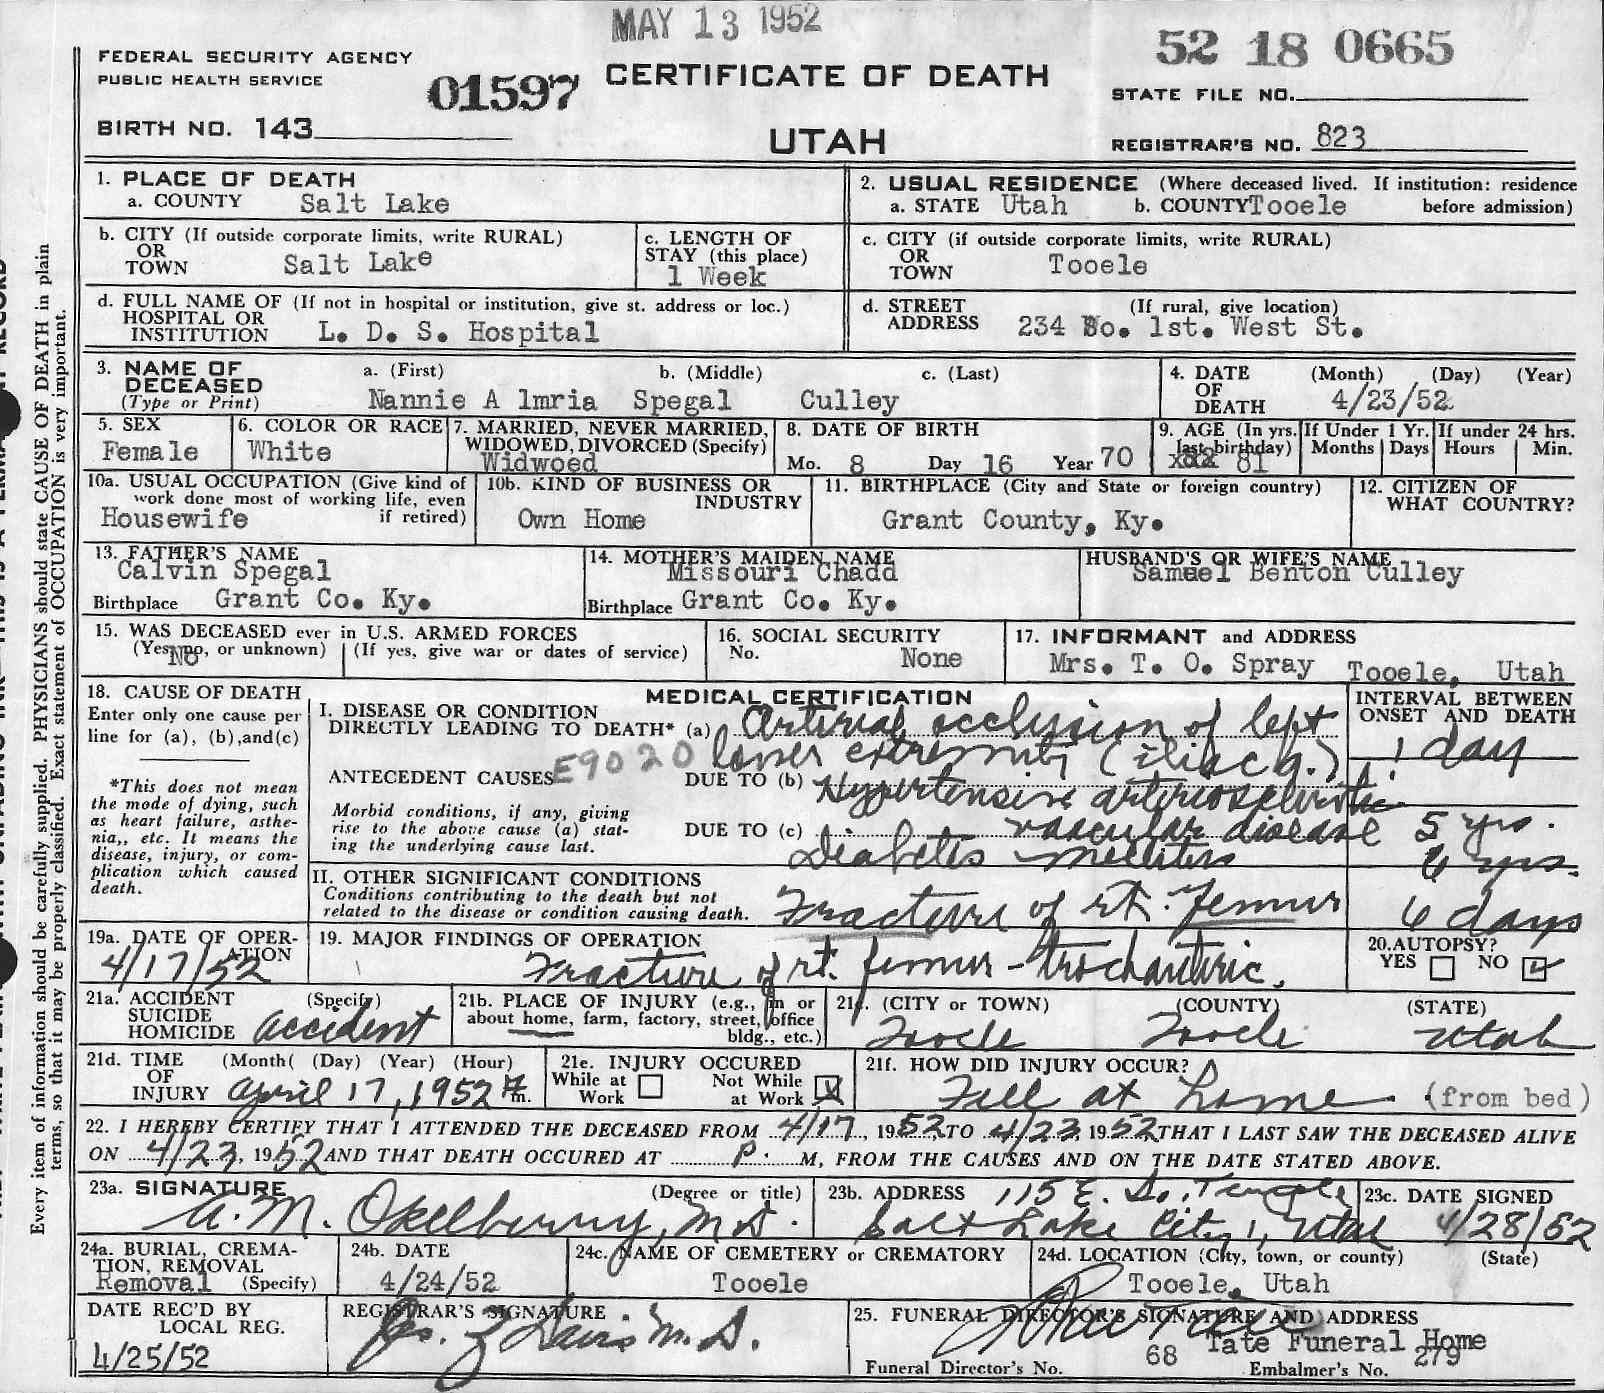 MAY 13 1952
52 18 0665
FEDERAL SECURITY AGENCY
PUBLIC HEALTH SERVICE
01597
CERTIFICATE OF DEATH
STATE FILE NO.
BIRTH NO. 143
UTAH
REGISTRAR'S NO. 823
1. PLACE OF DEATH
a. COUNTY Salt Lake
2. USUAL RESIDENCE (Where deceased lived. If institution: residence before admission)
a. STATE Utah b. COUNTY Tooele
b. CITY (If outside corporate limits, write RURAL)
OR
TOWN Salt Lake
c. LENGTH OF
STAY (this place)
1 Week
c. CITY (if outside corporate limits, write RURAL)
OR
TOWN Tooele
d. FULL NAME OF (If not in hospital or institution, give st. address or loc.)
HOSPITAL OR
INSTITUTION L. D. S. Hospital
d. STREET (If rural, give location)
ADDRESS 234 So. 1st. West St.
3. NAME OF a. (First) b. (Middle) c. (Last)
DECEASED
(Type or Print) Nannie A lmria Spegal Culley
4. DATE (Month) (Day) (Year)
OF
DEATH 4/23/52
5. SEX
Female
6. COLOR OR RACE
White
7. MARRIED, NEVER MARRIED,
WIDOWED, DIVORCED (Specify)
Widwoed
8. DATE OF BIRTH
Mo. 8 Day 16 Year 70
9. AGE (In yrs.
last birthday)
81
If Under 1 Yr.
Months Days
If under 24 hrs.
Hours Min.
10a. USUAL OCCUPATION (Give kind of
work done most of working life, even
if retired)
Housewife
10b. KIND OF BUSINESS OR
INDUSTRY
Own Home
11. BIRTHPLACE (City and State or foreign country)
Grant County, Ky.
12. CITIZEN OF
WHAT COUNTRY?
13. FATHER'S NAME
Calvin Spegal
Birthplace Grant Co. Ky.
14. MOTHER'S MAIDEN NAME
Missouri Chadd
Birthplace Grant Co. Ky.
HUSBAND'S OR WIFE'S NAME
Samuel Benton Culley
15. WAS DECEASED ever in U.S. ARMED FORCES
(Yes, no, or unknown) (If yes, give war or dates of service)
No
16. SOCIAL SECURITY
No. None
17. INFORMANT and ADDRESS
Mrs. T. O. Spray Tooele, Utah
18. CAUSE OF DEATH
Enter only one cause per
line for (a), (b),and(c)
*This does not mean
the mode of dying, such
as heart failure, asthe-
nia,, etc. It means the
disease, injury, or com-
plication which caused
death.
MEDICAL CERTIFICATION
INTERVAL BETWEEN
ONSET AND DEATH
I. DISEASE OR CONDITION
DIRECTLY LEADING TO DEATH* (a) Arterial occlusion of left
lower extremity (iliac a.) 1 day
E9020
ANTECEDENT CAUSES
DUE TO (b) Hypertensive arteriosclerotic
vascular disease 5 yrs.
Morbid conditions, if any, giving
rise to the above cause (a) stat-
ing the underlying cause last.
DUE TO (c) Diabetis mellitus 6 yrs.
II. OTHER SIGNIFICANT CONDITIONS
Conditions contributing to the death but not
related to the disease or condition causing death.
Fracture of rt. femur 6 days
19a. DATE OF OPER-
ATION
4/17/52
19. MAJOR FINDINGS OF OPERATION
Fracture of rt. femur - trochanteric.
20. AUTOPSY?
YES NO
21a. ACCIDENT (Specify)
SUICIDE
HOMICIDE accident
21b. PLACE OF INJURY (e.g., in or
about home, farm, factory, street, office
bldg., etc.)
21c. (CITY or TOWN) (COUNTY) (STATE)
Tooele Tooele Utah
21d. TIME (Month( (Day) (Year) (Hour)
OF
INJURY April 17, 1952 m.
21e. INJURY OCCURED
While at Work Not While at Work X
21f. HOW DID INJURY OCCUR?
Fell at home (from bed)
22. I HEREBY CERTIFY THAT I ATTENDED THE DECEASED FROM 4/17, 1952, TO 4/23, 1952 THAT I LAST SAW THE DECEASED ALIVE
ON 4/23, 1952 AND THAT DEATH OCCURED AT P. M, FROM THE CAUSES AND ON THE DATE STATED ABOVE.
23a. SIGNATURE (Degree or title)
A. M. Okelberry, M.D.
23b. ADDRESS 115 E. So. Temple
Salt Lake City 1, Utah
23c. DATE SIGNED
4/28/52
24a. BURIAL, CREMA-
TION, REMOVAL
Removal (Specify)
24b. DATE
4/24/52
24c. NAME OF CEMETERY or CREMATORY
Tooele
24d. LOCATION (City, town, or county) (State)
Tooele, Utah
DATE REC'D BY
LOCAL REG.
4/25/52
REGISTRAR'S SIGNATURE
25. FUNERAL DIRECTOR'S SIGNATURE AND ADDRESS
Tate Funeral Home
Funeral Director's No. 68 Embalmer's No. 279
Every item of information should be carefully supplied. PHYSICIANS should state CAUSE OF DEATH in plain
terms, so that it may be properly classified. Exact statement of OCCUPATION is very important.